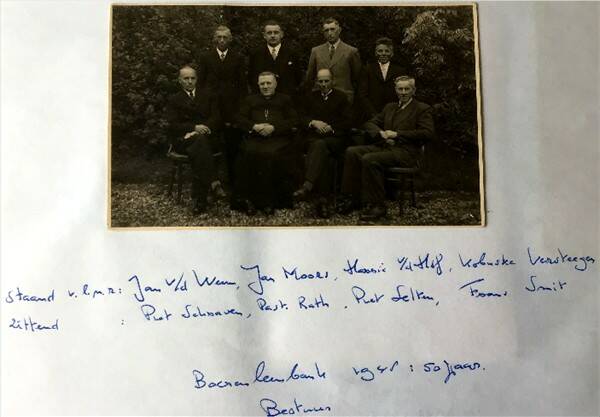 staand v.l.n.r: Jan v/d Wenn, Jan Moors, Hassie v/d Hof, Kobuske Versteegen
zittend : Piet Schraven, Past. Rath, Piet Selten, Frans Smit
Boerenleenbank : 50 jaar.
Bestuur